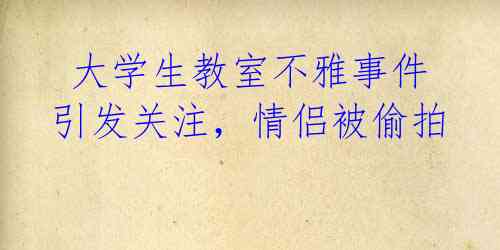 大学生教室不雅事件
引发关注，情侣被偷拍